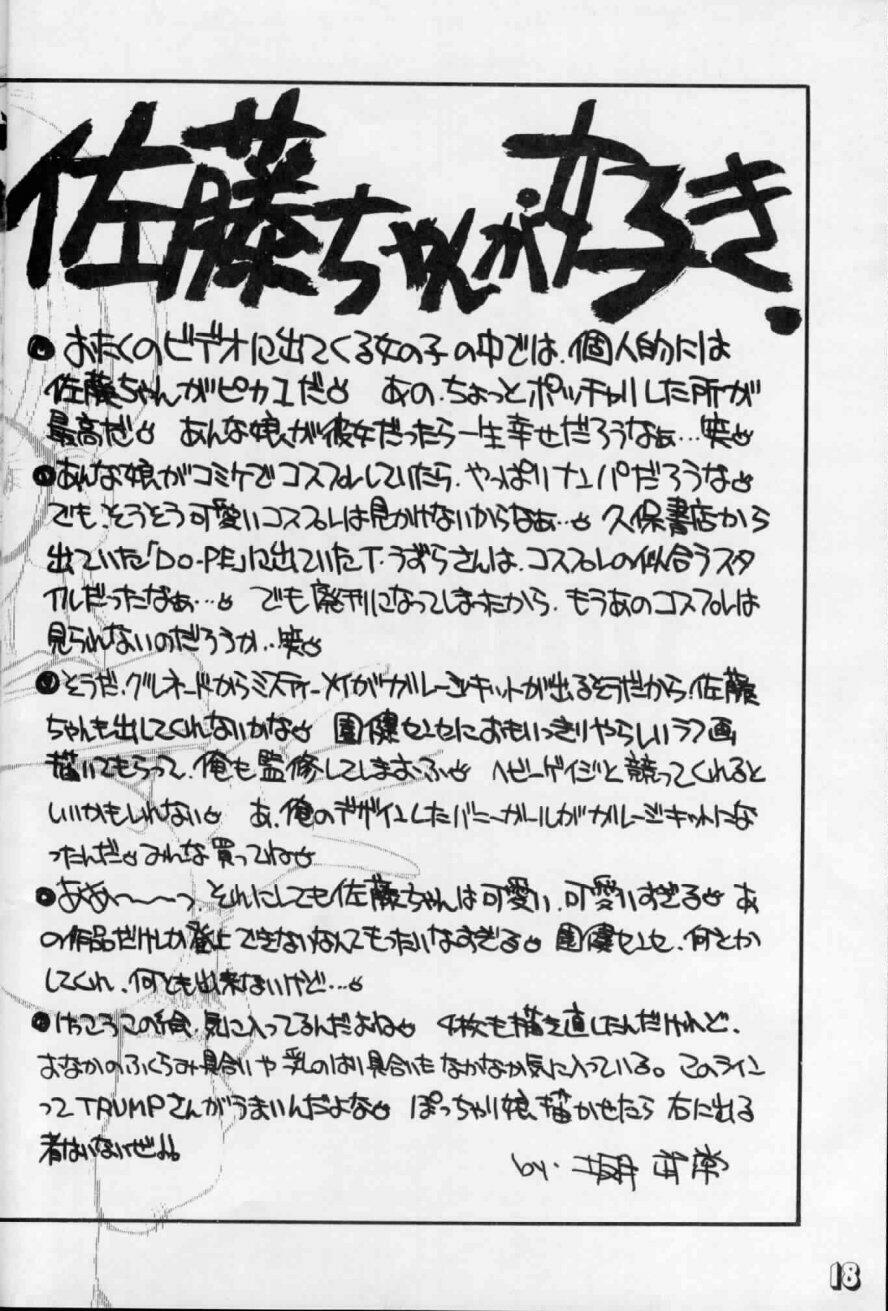 佐藤ちゃんが好き.
●おたくのビデオに出てくる女の子の中では、個人的には
佐藤ちゃんがピカ1だ♡ あの、ちょっとポッチャリした所が
最高だ♡ あんな娘が彼女だったら一生幸せだろうなぁ…笑♡
●あんな娘がコミケでコスプレしていたら、やっぱりナンパだろうな♡
でも、そうそう可愛いコスプレは見かけないからなぁ…♡ 久保書店から
出ていた「DO-PE」に出ていたT・うずらさんは、コスプレの似合うスタ
イルだったなぁ…♡ でも廃刊になってしまったから、もうあのコスプレは
見られないのだろうか…笑♡
●そうだ、グレネードからミスティーメイがガレージキットが出るそうだから、佐藤
ちゃんも出してくれないかな♡ 園健センセにおもいっきりやらしいラフ画
描いてもらって、俺も監修してしまおふ♡ ヘビーゲイジと競ってくれると
いいかもしれない♡ あ、俺のデザインしたバニーガールがガレージキットにな
ったんだ♡みんな買ってね♡
●ああ〜〜〜っ、それにしても佐藤ちゃんは可愛い、可愛いすぎる♡ あ
の作品だけしか登上できないなんてもったいなすぎる♡ 園健センセ、何とか
してくれ、何とも出来ないけど…♡
●けっこうこの絵、気に入ってるんだよね♡ 4枚も描き直したんだけれど、
おなかのふくらみ具合いや乳のはり具合いもなかなか気に入っている。このライン
ってTRUMPさんがうまいんだよな♡ ぽっちゃり娘、描かせたら右に出る
者はいないぜよ。
by・
18